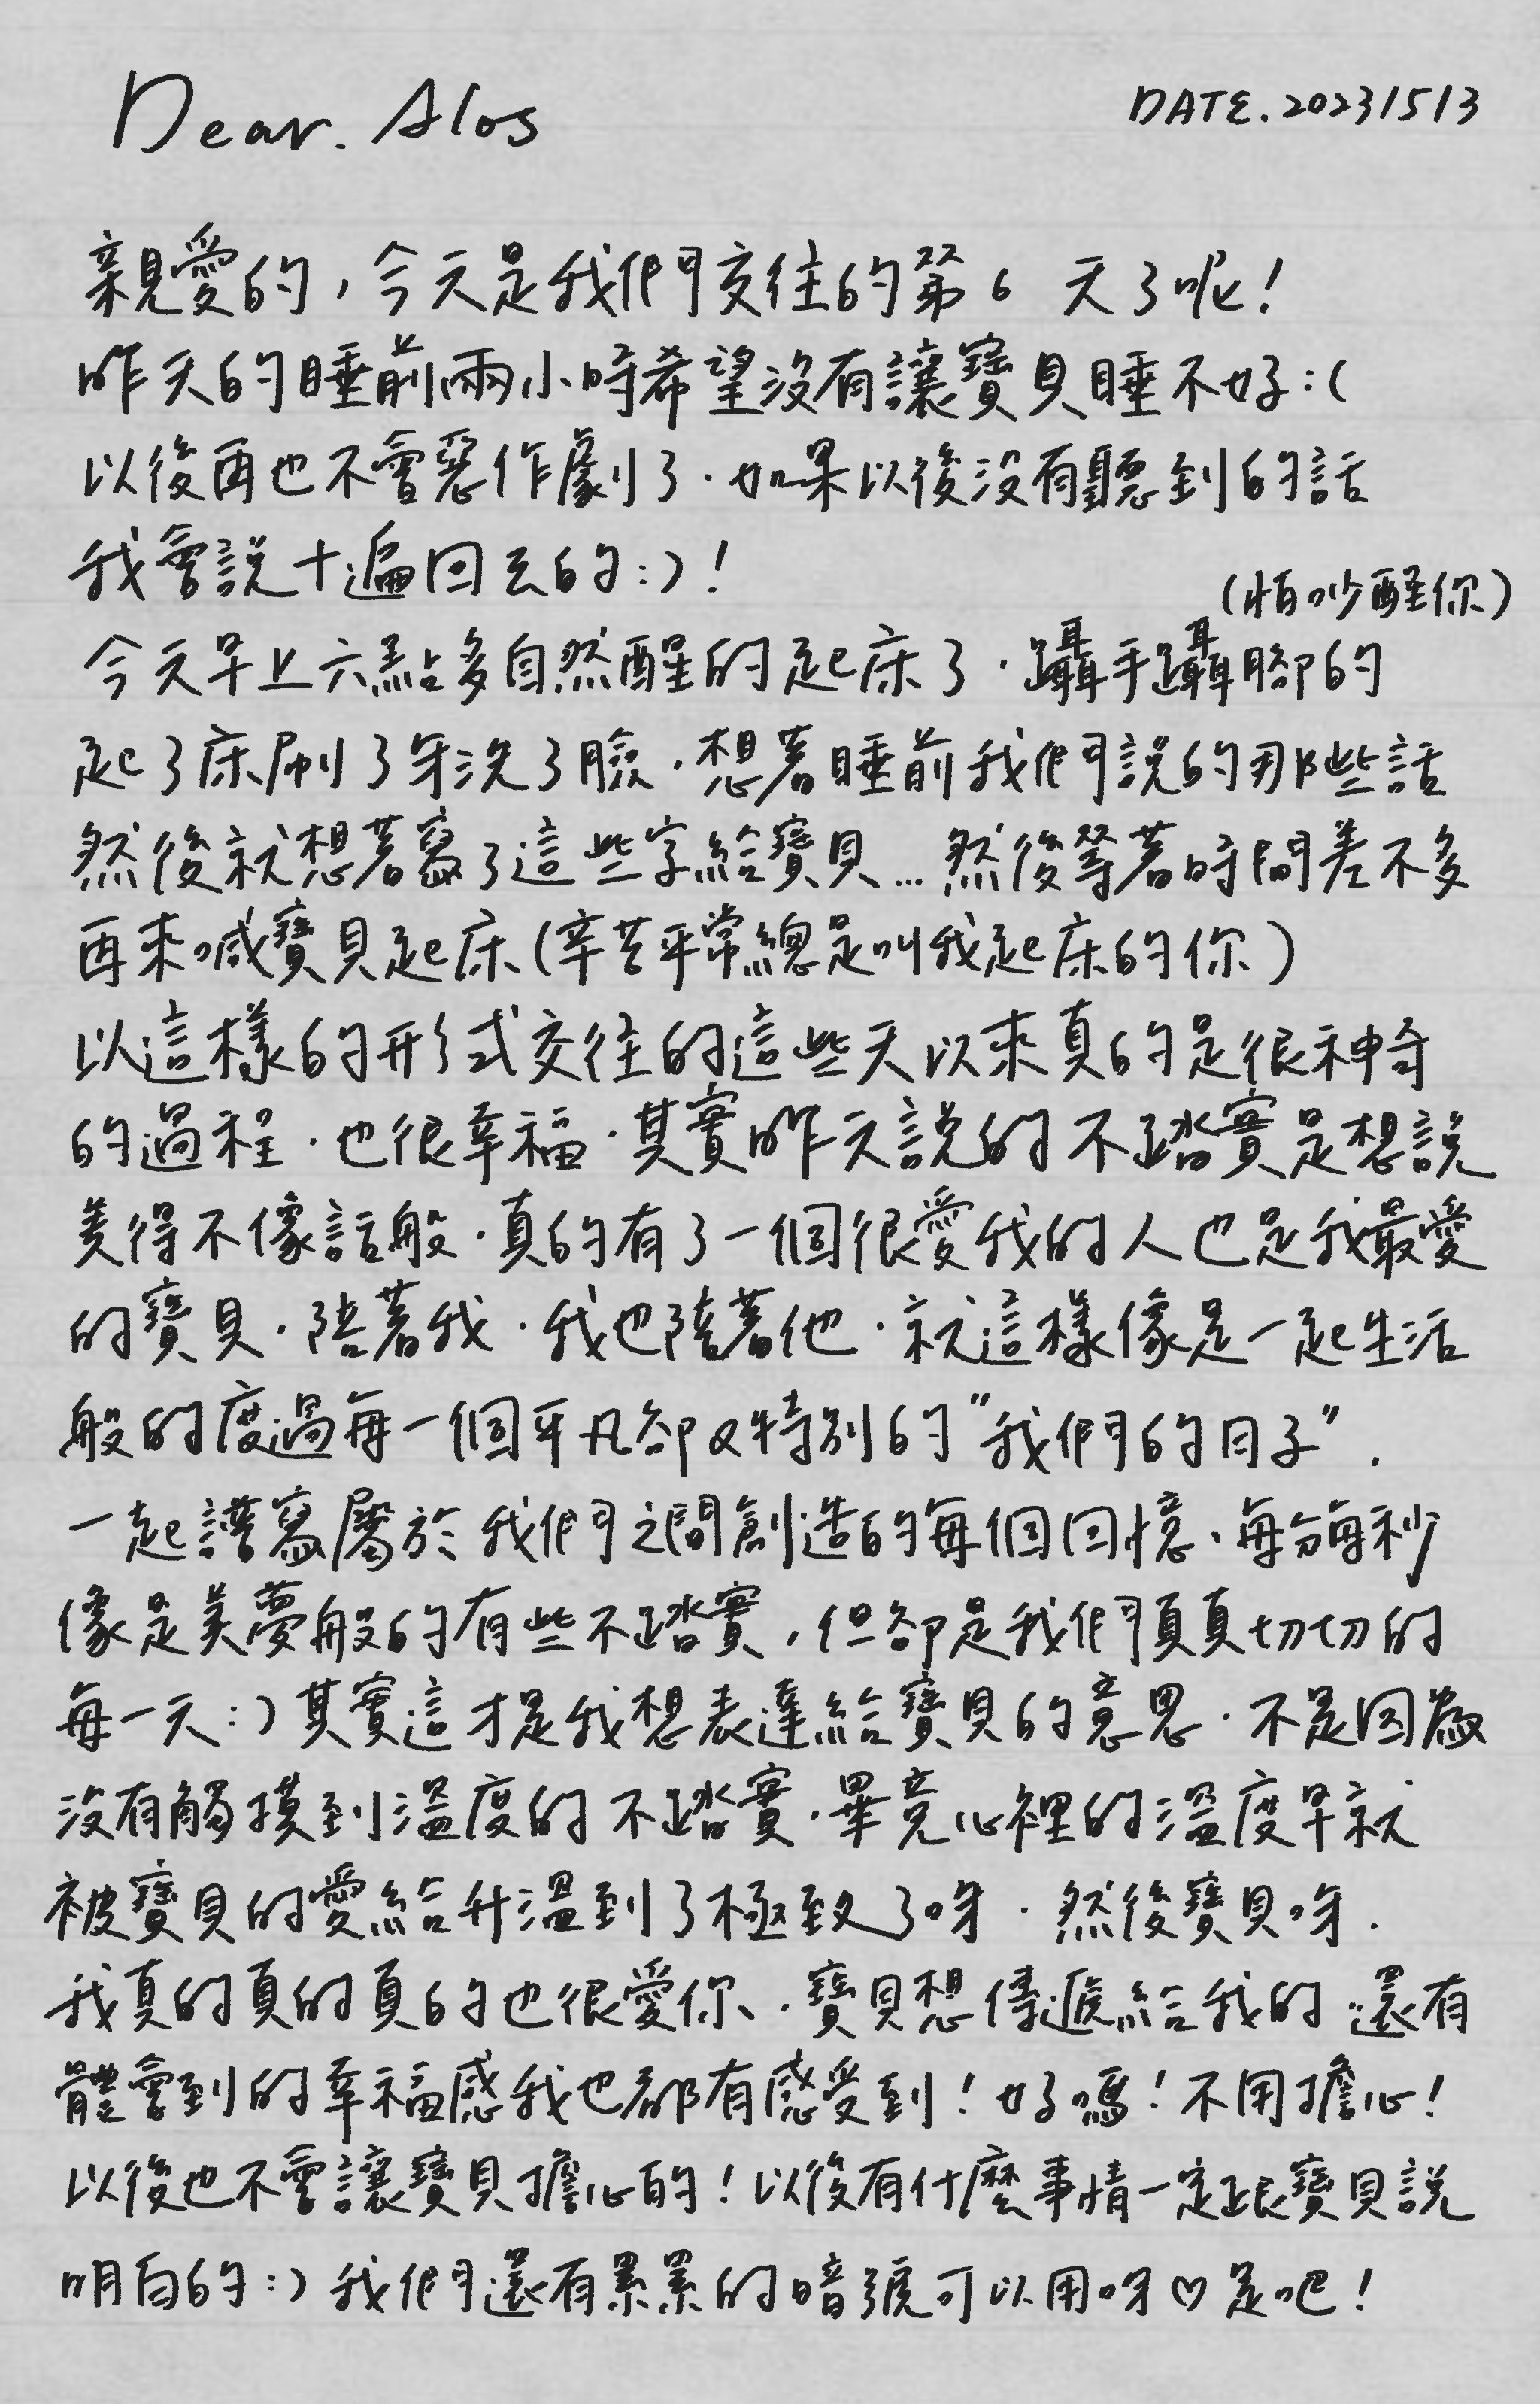 Dear. Alos
DATE. 2023/5/3
親愛的，今天是我們交往的第6 天了呢！
昨天的睡前兩小時希望沒有讓寶貝睡不好:(
以後再也不會惡作劇了．如果以後沒有聽到的話
我會說十遍回去的:)！
(怕吵醒你)
今天早上六點多自然醒的起床了．躡手躡腳的
起了床刷了牙洗了臉．想著睡前我們說的那些話
然後就想著寫了這些字給寶貝...然後等著時間差不多
再來喊寶貝起床(辛苦平常總是叫我起床的你)
以這樣的形式交往的這些天以來真的是很神奇
的過程．也很幸福．其實昨天說的不踏實是想說
美得不像話般．真的有了一個很愛我的人也是我最愛
的寶貝．陪著我．我也陪著他．就這樣像是一起生活
般的度過每一個平凡卻又特別的"我們的日子"．
一起譜寫屬於我們之間創造的每個回憶、每分每秒
像是美夢般的有些不踏實，但卻是我們真真切切的
每一天:)其實這才是我想表達給寶貝的意思．不是因為
沒有觸摸到溫度的不踏實．畢竟心裡的溫度早就
被寶貝的愛給升溫到了極致了呀．然後寶貝呀．
我真的真的真的也很愛你、．寶貝想傳遞給我的 還有
體會到的幸福感我也都有感受到！好嗎！不用擔心！
以後也不會讓寶貝擔心的！以後有什麼事情一定跟寶貝說
明白的:)我們還有累累的暗號可以用呀♡是吧！